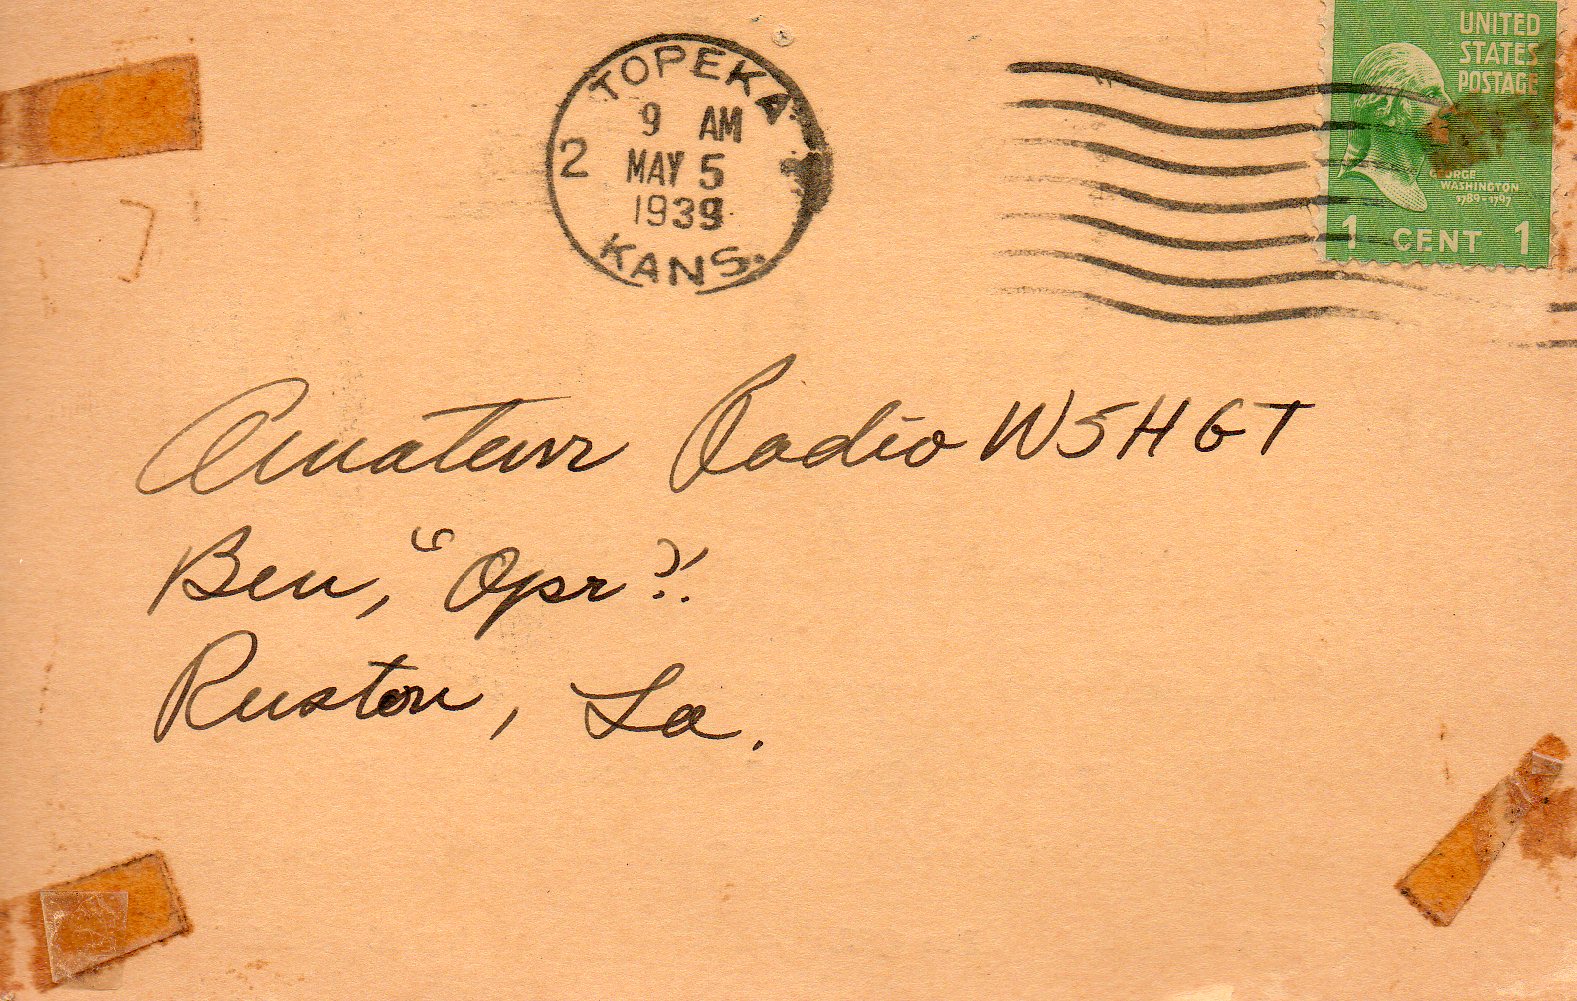 TOPEKA
2
9 AM
MAY 5
1939
KANS.
UNITED
STATES
POSTAGE
GEORGE
WASHINGTON
1789-1797
1 CENT 1
Amateur Radio W5HGT
Ben, "Opr"?.
Ruston, La.